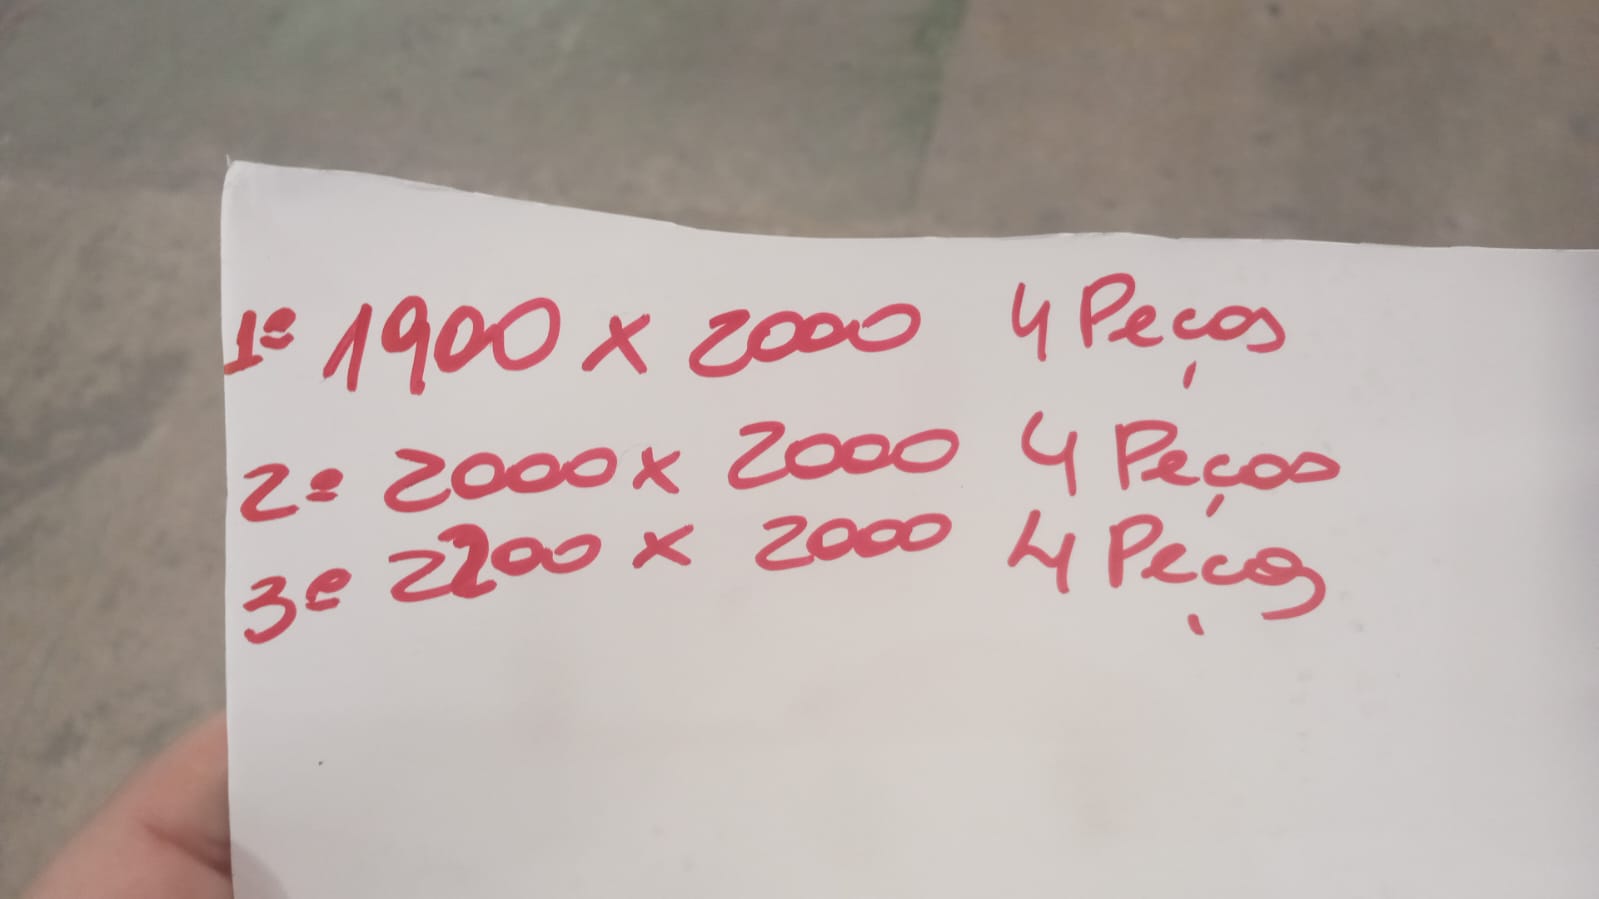 1º 1900 x 2000 4 Peças
2º 2000 x 2000 4 Peças
3º 2200 x 2000 4 Peças